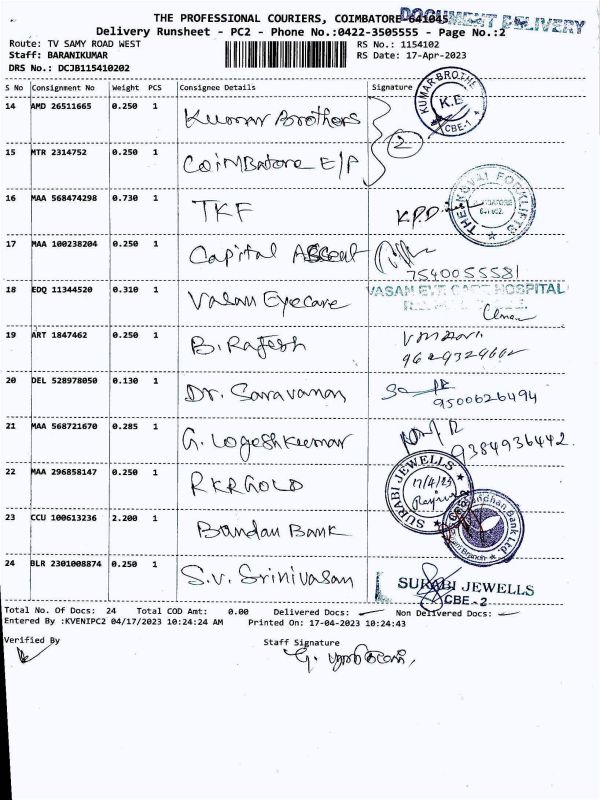 THE PROFESSIONAL COURIERS, COIMBATORE-641045
DOCUMENT DELIVERY
Delivery Runsheet - PC2 - Phone No.:0422-3505555 - Page No.:2
Route: TV SAMY ROAD WEST RS No.: 1154102
Staff: BARANIKUMAR RS Date: 17-Apr-2023
DRS No.: DCJB115410202
S No Consignment No Weight PCS Consignee Details Signature
14 AMD 26511665 0.250 1 Kumar Brothers KUMAR BROTHE K.E. CBE-1
2
15 MTR 2314752 0.250 1 Coimbatore E/P
16 MAA 568474298 0.730 1 TKF K.P.D THE KOVAI FORKLIFTS
17 MAA 100238204 0.250 1 Capital Ascent
7540055581
18 EDQ 11344520 0.310 1 Vasan Eyecare VASAN EYE CARE HOSPITAL
19 ART 1847462 0.250 1 B. Rajesh
20 DEL 528978050 0.130 1 Dr. Saravanan
9500626494
21 MAA 568721670 0.285 1 G. Logeshkumar
9384936442.
22 MAA 296858147 0.250 1 RKRGOLD SURABI JEWELLS 17/4/23
23 CCU 100613236 2.200 1 Bandan Bank Bandhan Bank Ltd.
24 BLR 2301008874 0.250 1 S.V. Srinivasan SURABI JEWELLS
CBE - 2
Total No. Of Docs: 24 Total COD Amt: 0.00 Delivered Docs: Non Delivered Docs:
Entered By :KVENIPC2 04/17/2023 10:24:24 AM Printed On: 17-04-2023 10:24:43
Verified By Staff Signature